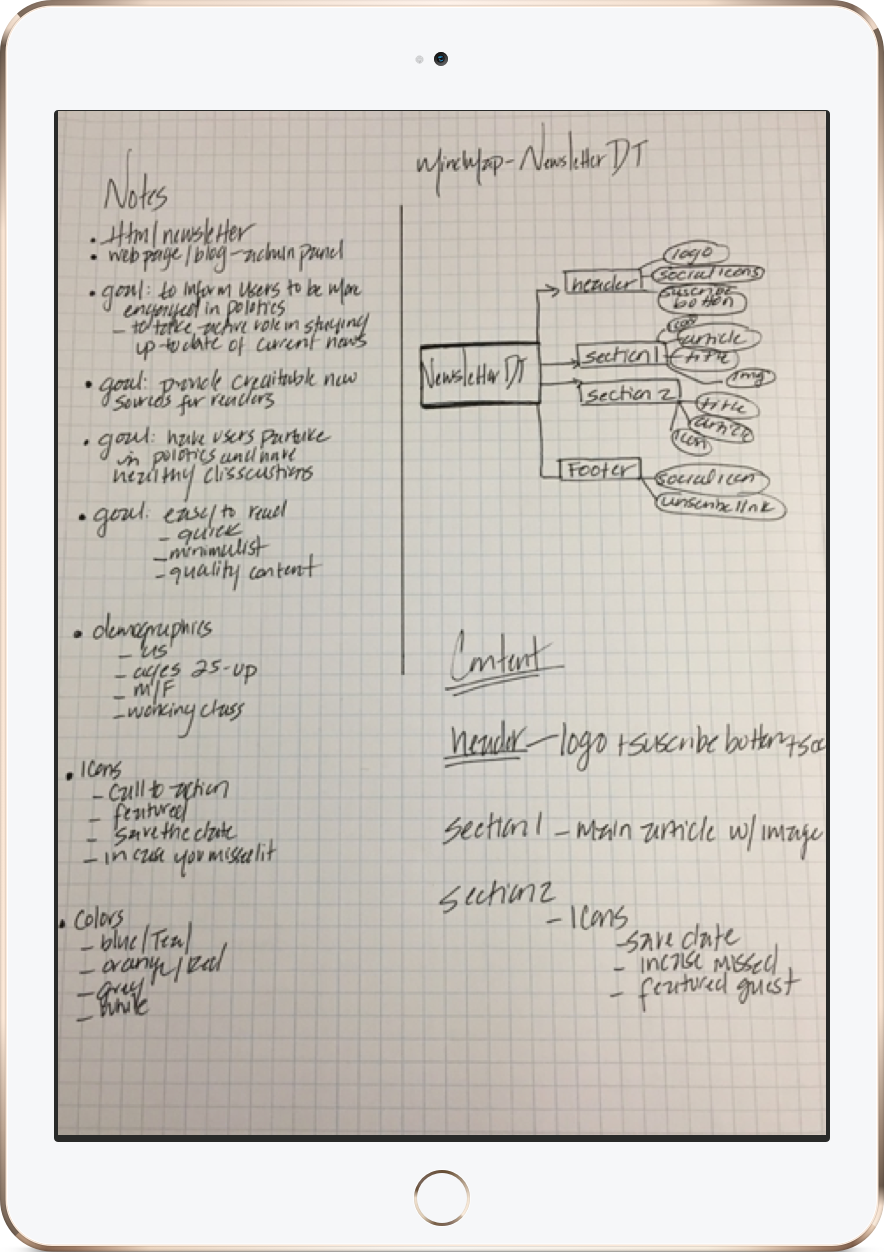 Notes
• Html newsletter
• webpage/blog - admin panel
• goal: to inform users to be more
engaged in polotics
- to take active role in staying
up to date of current news
• goal: provide creaitable new
sources for readers
• goal: have users partake
in polotics and have
healthy disscustions
• goal: easy to read
- quick
- minimulist
- quality content
• demographics
- US
- ages 25-up
- M/F
- working class
• Icons
- Call to action
- featured
- save the date
- in case you missed it
• Colors
- blue/Teal
- orange/Red
- grey
- White
MindMap - Newsletter DT
Newsletter DT
header
logo
social icons
suscribe
botton
section 1
icon
article
title
img
section 2
title
article
icon
Footer
social icon
unscribe link
Content
header - logo + suscribe botton + soc
Section 1 - main article w/ image
Section 2
- Icons
- save date
- incase missed
- featured guest